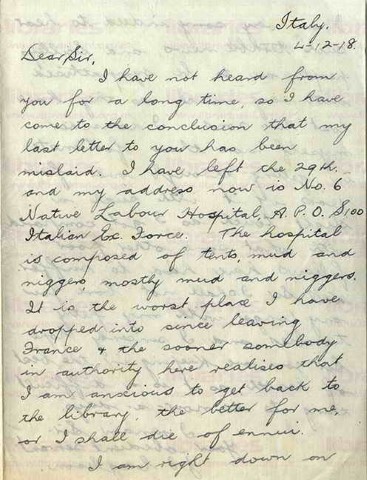 Italy.
4-12-18.
Dear Sir,
I have not heard from
you for a long time, so I have
come to the conclusion that my
last letter to you has been
mislaid. I have left the 29th.
and my address now is No. 6
Native Labour Hospital, A.P.O. S100
Italian Ex. Force. The hospital
is composed of tents, mud and
niggers, mostly mud and niggers.
It is the worst place I have
dropped into since leaving
France & the sooner somebody
in authority here realises that
I am anxious to get back to
the library the better for me,
or I shall die of ennui.
I am right down on